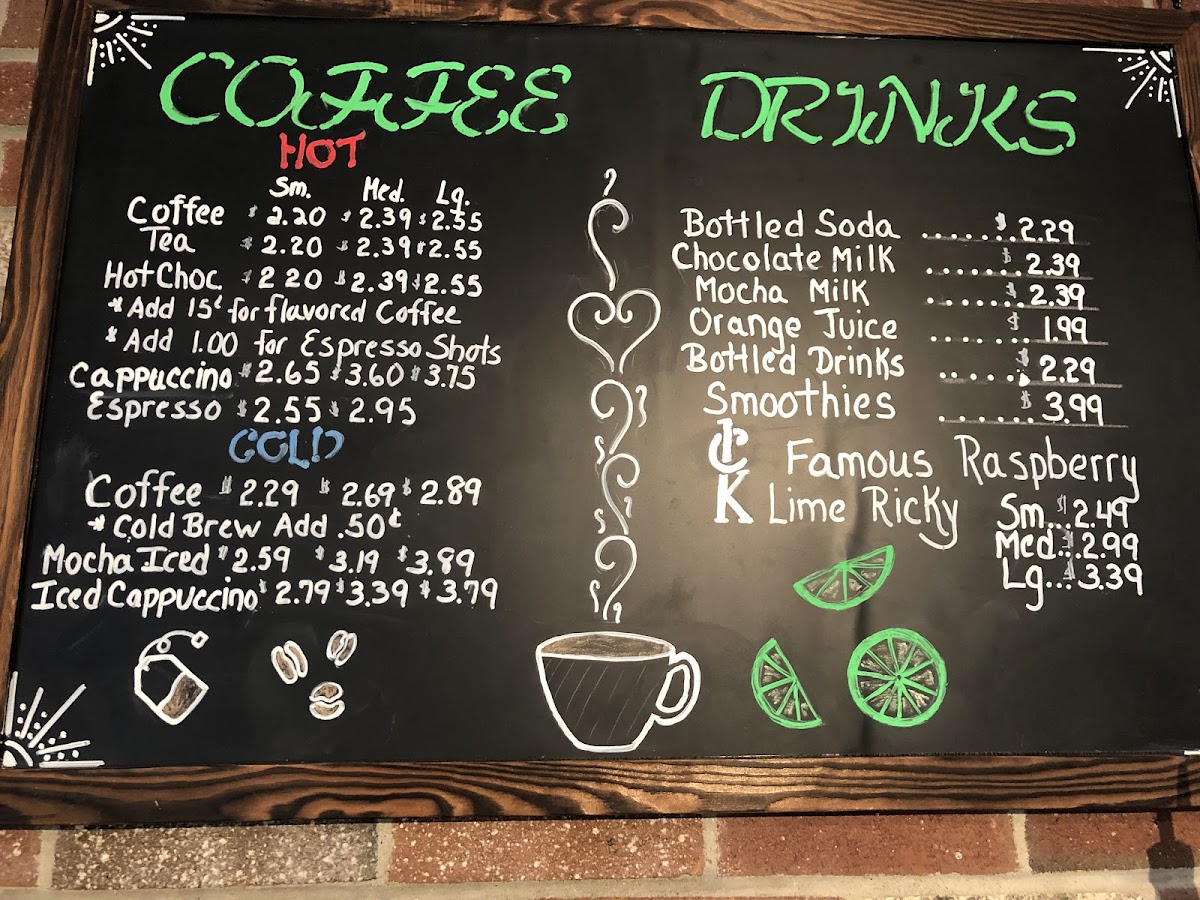 COFFEE
HOT
Sm. Med. Lg.
Coffee $2.20 $2.39 $2.55
Tea $2.20 $2.39 $2.55
Hot Choc. $2.20 $2.39 $2.55
*Add 15¢ for flavored Coffee
*Add 1.00 for Espresso Shots
Cappuccino $2.65 $3.60 $3.75
Espresso $2.55 $2.95
COLD
Coffee $2.29 $2.69 $2.89
*Cold Brew Add .50¢
Mocha Iced $2.59 $3.19 $3.89
Iced Cappuccino $2.79 $3.39 $3.79
DRINKS
Bottled Soda ......$2.29
Chocolate Milk .......$2.39
Mocha Milk .......$2.39
Orange Juice .......$1.99
Bottled Drinks ......$2.29
Smoothies ......$3.99
Famous Raspberry
K Lime Ricky
Sm...$2.49
Med...$2.99
Lg...$3.39